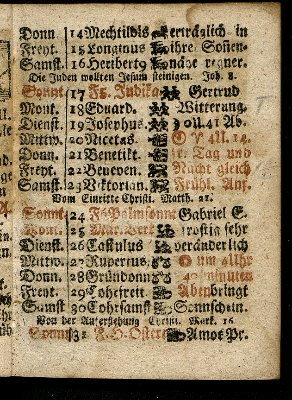 Donn 14 Mechtildis erträglich in
Freyt. 15 Longinus ihre Sonen-
Samst. 16 Heribert regner.
Die Juden wollten Jesum steinigen. Joh. 8.
Sonnt 17 F5. Judika Gertrud
Mont. 18 Eduard. Witterung.
Dienst. 19 Josephus. Ab.
Mittw. 20 Nicetas. 14.
Donn. 21 Benedikt. Tag und
Freyt. 22 Beneven. Nacht gleich
Samst 23 Viktorian. Frühl. Anf.
Vom Einritte Christi. Matth. 21.
Sonnt. 24 F6 Palmsonnt Gabriel E.
Mont. 25 Mar. Verk. frostig sehr
Dienst. 26 Castulus veränderlich
Mittw. 27 Rupertus. um Uhr
Donn. 28 Gründonn 40 minuten
Freyt. 29 Charfreit Aben bringt
Samst 30 Charsamst Sonnschein.
Von der Auferstehung Christi. Mark. 16
Sonnt 31 F. H. Oster Amos Pr.